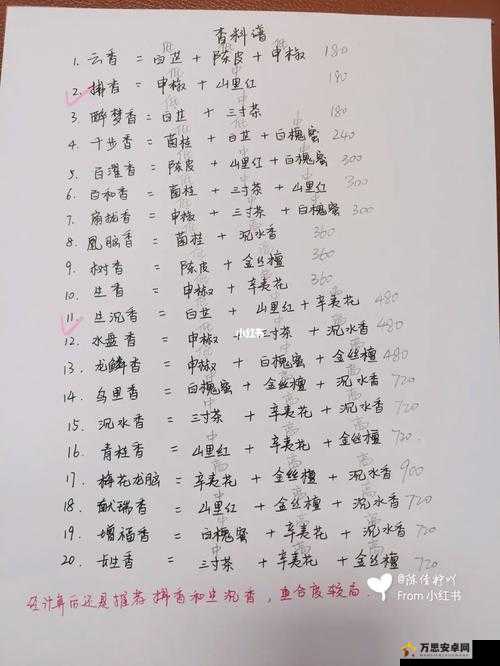 香料谱
1. 云香 = 白芷 + 陈皮 + 申椒 180
2. 拂香 = 申椒 + 山里红 180
3. 醉梦香 = 白芷 + 三寸茶 180
4. 十步香 = 菌桂 + 白芷 + 白槐蜜 240
5. 百濯香 = 陈皮 + 山里红 + 白槐蜜 300
6. 百和香 = 菌桂 + 三寸茶 + 山里红 300
7. 扇坠香 = 申椒 + 三寸茶 + 白槐蜜 300
8. 凰脑香 = 菌桂 + 沉水香 360
9. 树香 = 陈皮 + 金丝檀 360
10. 生香 = 申椒 + 辛夷花 360
11. 生沉香 = 白芷 + 山里红 + 辛夷花 480
12. 水盘香 = 申椒 + 三寸茶 + 沉水香 480
13. 龙鳞香 = 申椒 + 白槐蜜 + 金丝檀 480
14. 乌里香 = 白槐蜜 + 金丝檀 + 沉水香 720
15. 沉水香 = 三寸茶 + 辛夷花 + 沉水香 720
16. 青桂香 = 山里红 + 辛夷花 + 金丝檀 720
17. 梅花龙脑 = 辛夷花 + 金丝檀 + 沉水香 900
18. 献瑞香 = 山里红 + 金丝檀 + 沉水香 720
19. 增福香 = 白槐蜜 + 辛夷花 + 沉水香 720
20. 长生香 = 三寸茶 + 辛夷花 + 金丝檀 720
经计算后还是推荐拂香和生沉香，重合度较高.
小红书
@陈佳柠吖
From 小红书
万思安卓网